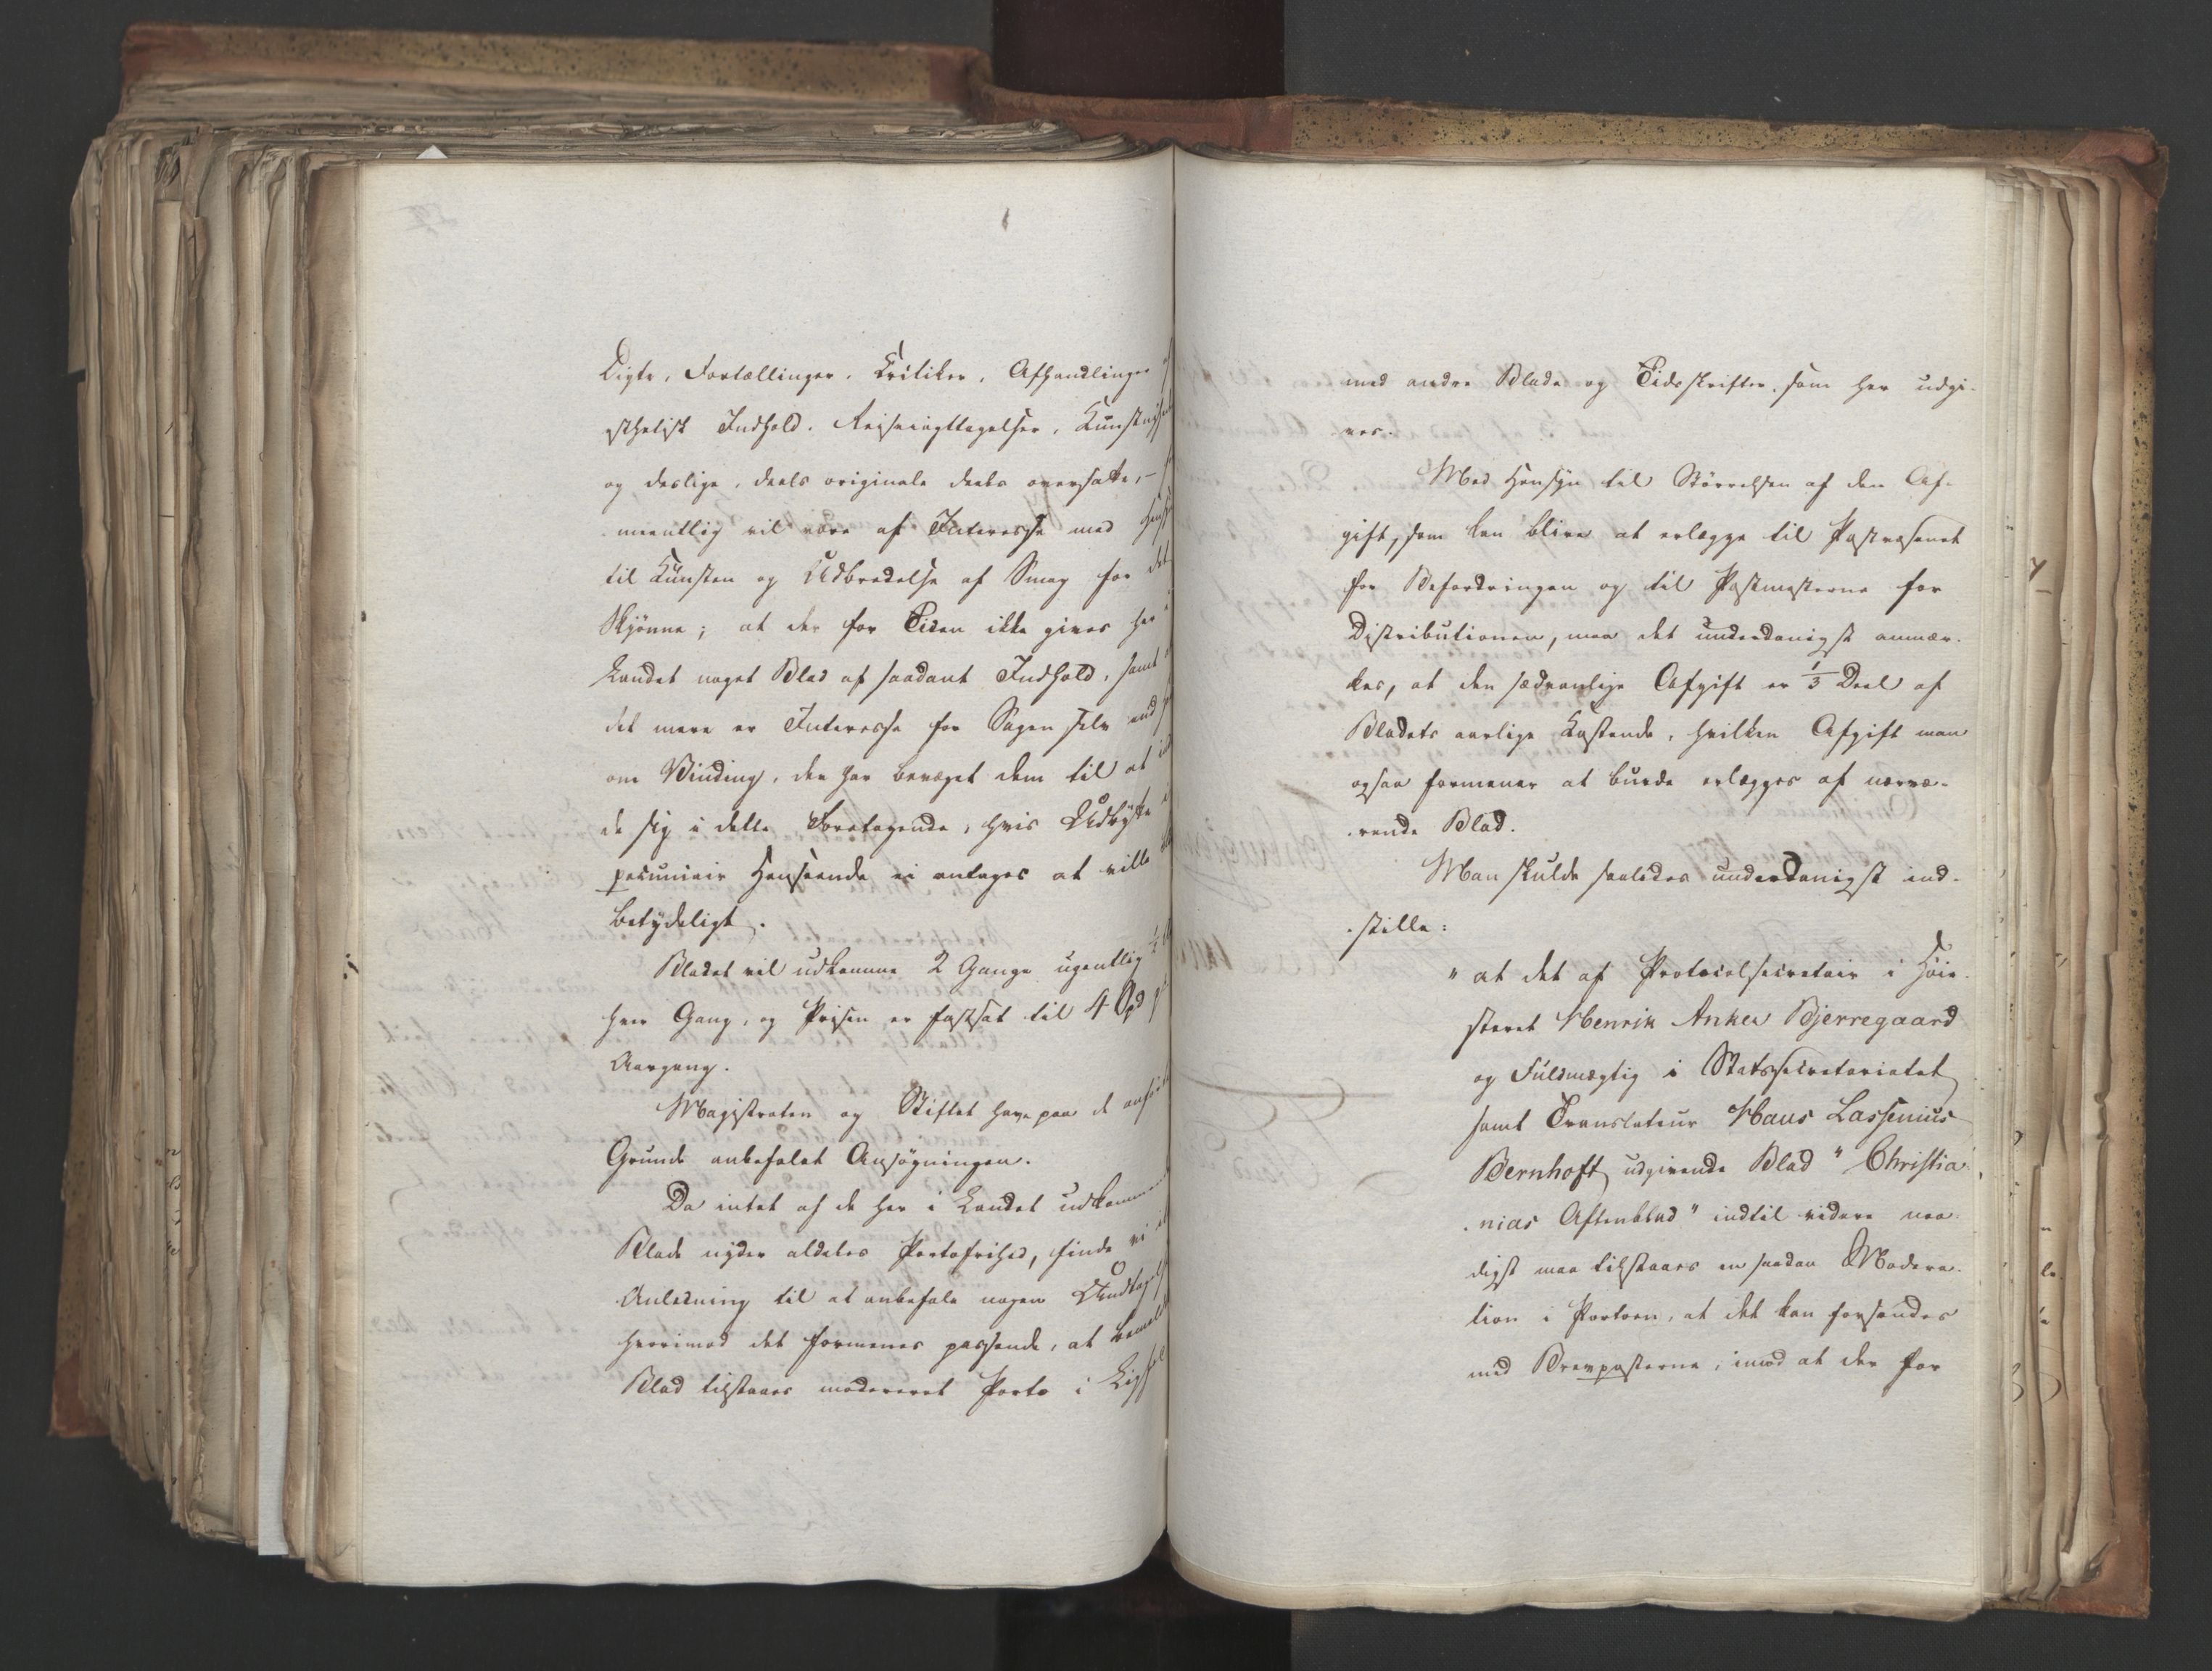 Digte, Fortællinger, Kritiker, Afhandlinger
esthetisk Indhold, Reiseiagttagelser,
og deslige, deels originale deels oversatte, –
meentlig vil være af Interesse med
til Kunsten og Udbredelse af Smag for det
Skjönne; at der for Tiden ikke gives her
Landet noget Blad af saadant Indhold, samt
det mere er Interesse for Sagen selv end
om Vinding, der har bevæget dem til at
de sig i dette Foretagende, hvis Udbytte
pecuniair Henseende ei antages at ville
betydeligt.
Bladet vil udkomme 2 Gange ugentlig ½
hver Gang, og Prisen er fastsat til 4 Spd
Aargang.
Magistraten og Stiftet have paa de
Grunde anbefalet Ansøgningen.
Da intet af de her i Landet
Blade nyder aldeles Portofrihed, finde vi
Anledning til at anbefale nogen
hvorimod det formenes passende, at
Blad tilstaaes modereret Porto i
med andre Blade og Tidsskrifter, som her udgi-
ves.
Med Hensyn til Størrelsen af den Af-
gift, som kan blive at erlægge til Postvæsenet
for Befordringen og til Postmesterne for
Distributionen, maa det underdanigst anmær-
kes, at den sædvanlige Afgift er 1/3 Deel af
Bladets aarlige Kostende, hvilken Afgift man
ogsaa formener at burde erlægges af nærvæ-
rende Blad.
Man skulde saaledes underdanigst ind-
stille:
" at det af Protocolsecretair i Høie-
steret Henrik Anker Bjerregaard
og Fuldmægtig i Statssecretariatet
samt Translateur Hans Lassenius
Bernhoft udgivende Blad " Christia
nias Aftenblad" indtil videre naa-
digst maa tilstaaes en saadan Modera-
tion i Portoen, at det kan forsendes
med Brevposterne, imod at der for